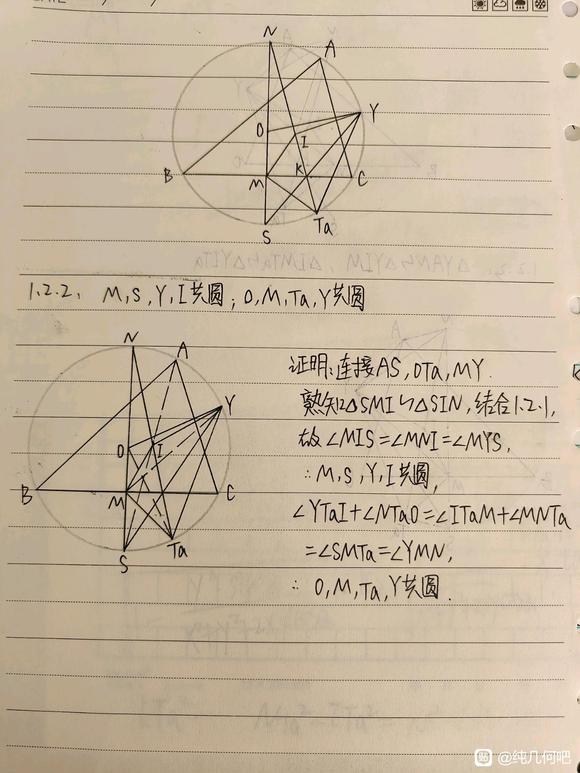 N
A
Y
O
I
B
M
K
C
S
Ta
1.2.2. M,S,Y,I共圆;O,M,Ta,Y共圆
N
A
Y
O
I
B
M
C
S
Ta
证明:连接AS,OTa,MY.
熟知△SMI∽△SIN,结合1.2.1,
故∠MIS=∠MNI=∠MYS,
∴M,S,Y,I共圆,
∠YTaI+∠NTaO=∠ITaM+∠MNTa
=∠SMTa=∠YMN,
∴O,M,Ta,Y共圆.
@纯几何吧